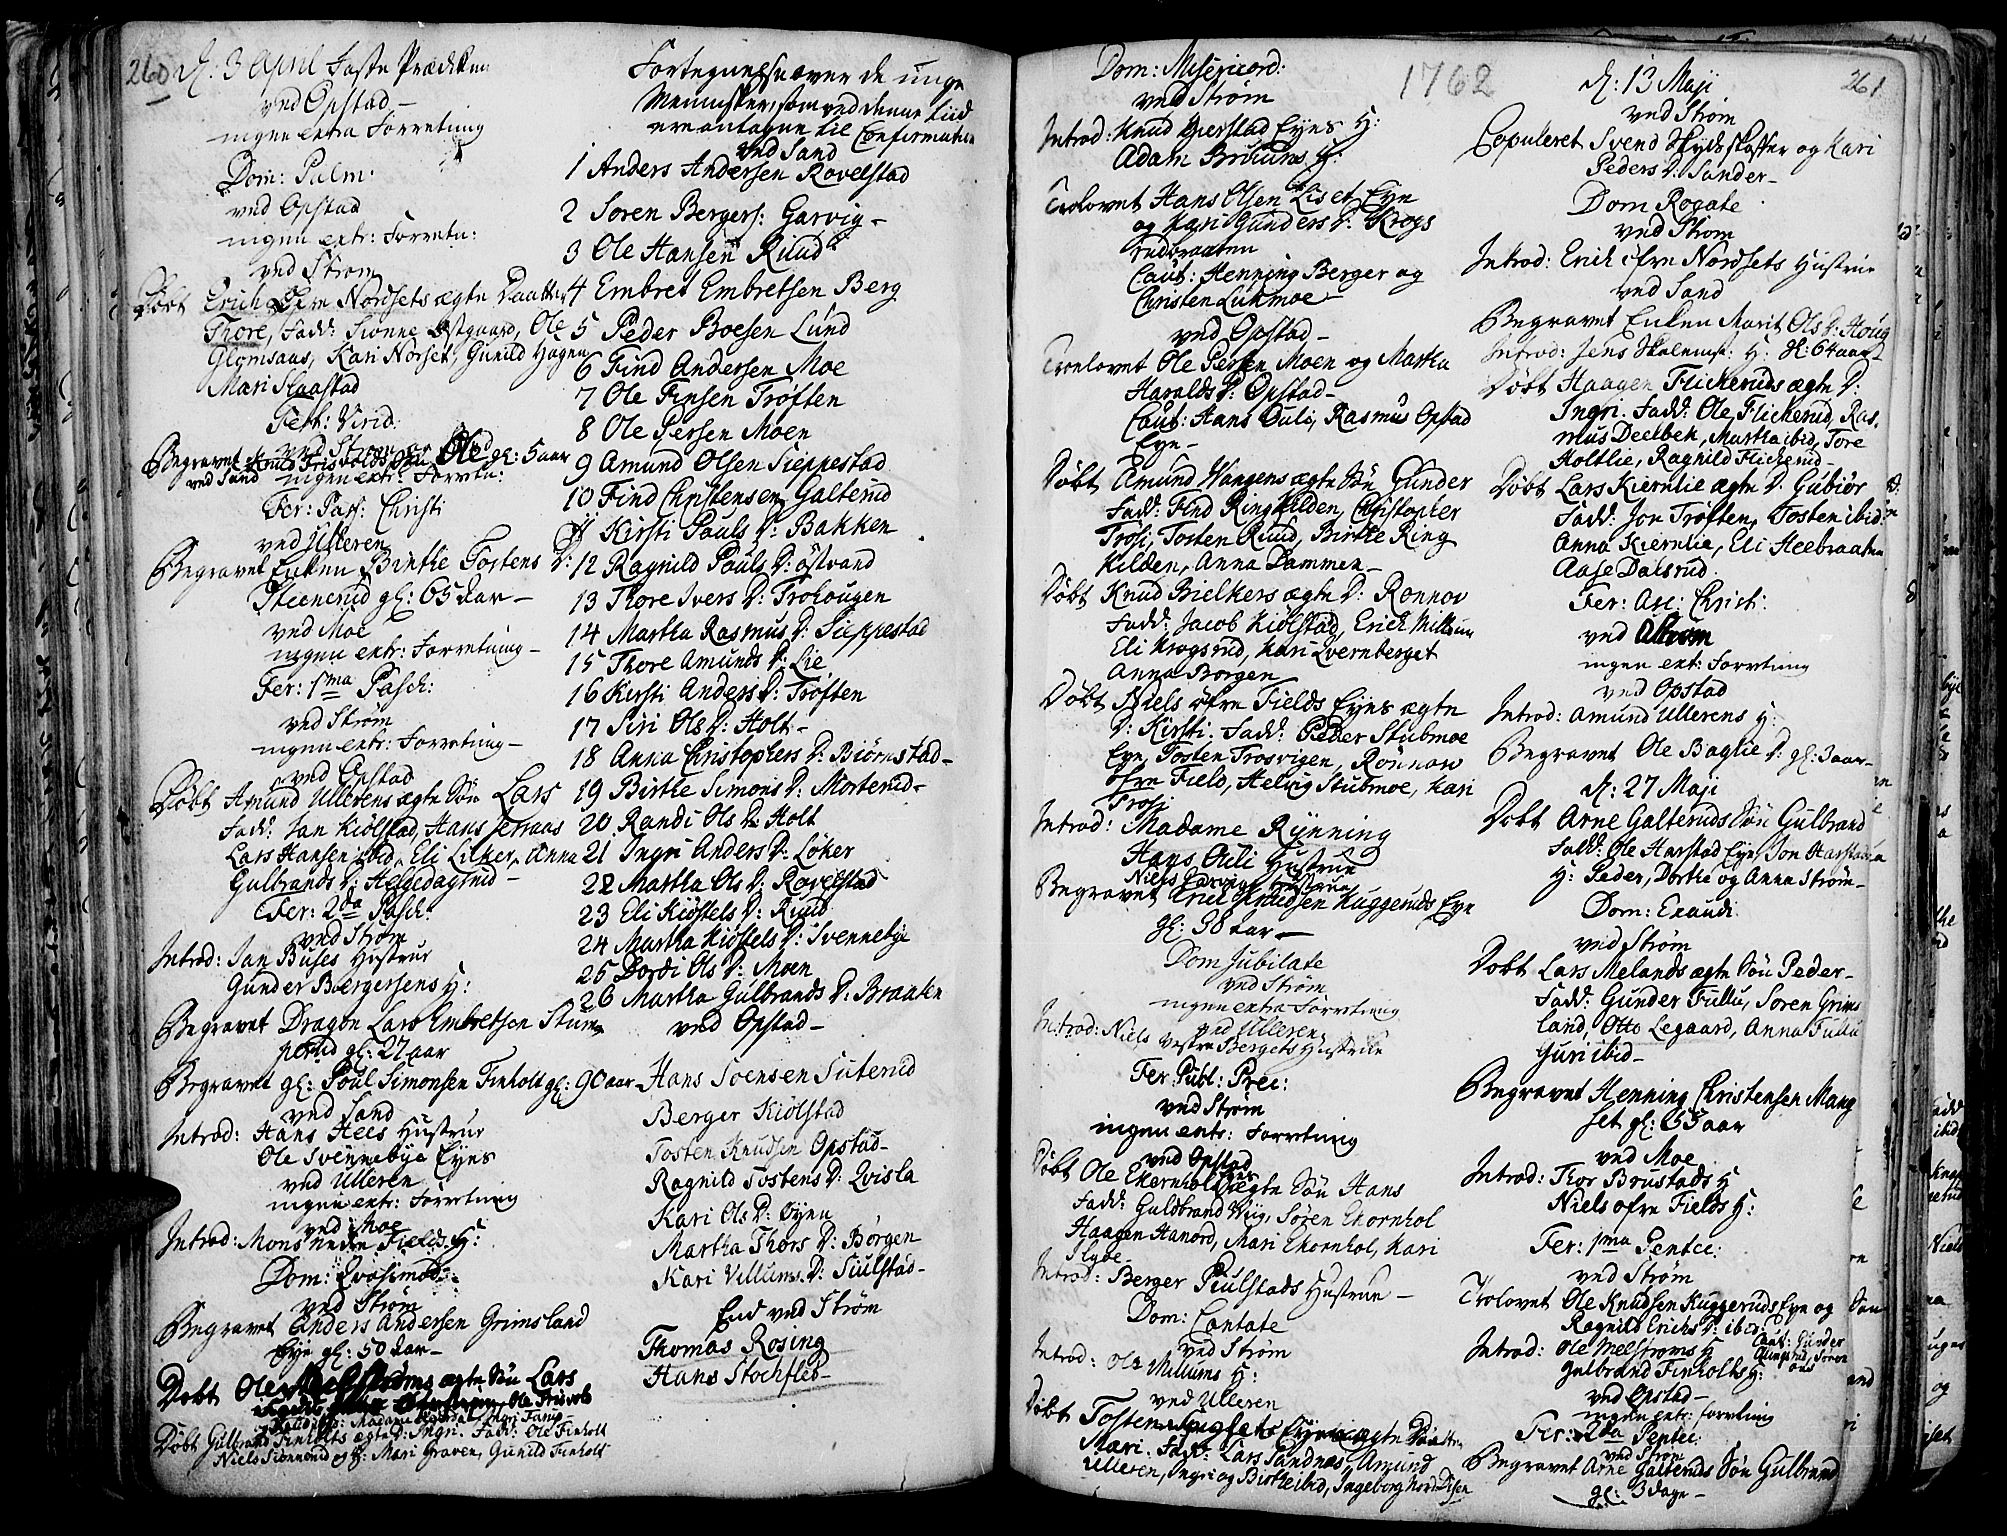 260 d: 3 April Faste Prædiken
ved Opstad -
ingen extra Forretning
Dom: Palm:
ved Opstad
ingen extr: Forretn:
ved Strøm
Døbt Erich Øfre Nordsets ægte Daatter
Thore, Fadd: Siønne Østgaard, Ole
Glomsaas, Kari Norset, Gunild Hagen
Mari Slaastad
Feft: Virid:
ved Strøm
Begravet Knud Trisvolds Søn Ole gl: 5 aar
ved Sand ingen extr: Forretn:
Fer: Pass: Christi
ved Ulleren
Begravet Enken Birthe Tostens D:
Steenerud gl: 65 aar -
ved Moe
ingen extr: Forretning -
Fer: 1ma Pasch:
ved Strøm
ingen extr: Forretning -
ved Opstad
Døbt Amund Ullerens ægte Søn Lars
Fadd: Jan Kiølstad, Hans
Lars Hansen ibid, Eli Løker, Anna
Gulbrands D: Helgedagsrud -
Fer: 2da Pasch:
ved Strøm
Introd: Jan Buses Hustrue
Gunder Bergersens H:
Begravet Dragon Lars Embretsen Stum
perud gl: 27 aar
Begravet gl: Poul Simonsen Finholt gl: 90 aar
ved Sand
Introd: Hans Hees Hustrue
Ole Svennebye Eyes
ved Ulleren
ingen extr: Forretning
ved Moe
Introd: Mons nedre Fields H:
Dom: Qvasimod:
ved Strøm
Begravet Anders Andersen Grimsland
Eye gl: 50 aar -
Døbt Ole Melstrøms ægte Søn Lars
Ole Trisvold
Døbt Gulbrand Finholts ægte D: Ingri. Fadd: Ole Finholt
Niels Siønnerud og H: Mari Graven, Gunild Finholt
Fortegnelse over de unge
Mennesker, som ved denne tiid
ere antagne til Confirmation
ved Sand
1 Anders Andersen Rovelstad
2 Soren Bergers: Garvig -
3 Ole Hansen Ruud
4 Embret Embretsen Berg
5 Peder Boesen Lund
6 Find Andersen Moe
7 Ole Finsen Trøften
8 Ole Persen Moen
9 Amund Olsen Sieppestad
10 Find Christensen Galterud
11 Kirsti Pauls D: Bakken
12 Ragnild Pauls D: Østvand
13 Thore Ivers D: Trohougen
14 Martha Rasmus D: Sieppestad
15 Thore Amunds D: Lie
16 Kirsti Anders D: Trøften
17 Siri Ols D: Holt -
18 Anna Christophers D: Biørnstad -
19 Birthe Simons D: Morterud -
20 Randi Ols D: Holt
21 Ingri Anders D: Løker
22 Martha Ols D: Rovelstad
23 Eli Kiøstels D: Ruud
24 Martha Kiøstels D: Svennebye
25 Dordi Ols D: Moen
26 Martha Gulbrands D: Braaten
ved Opstad -
Hans Svensen Suterud
Berger Kiølstad
Tosten Knudsen Opstad -
Ragnild Tostens D: Qvisla
Kari Ols D: Øyen
Martha Thors D: Borgen
Kari Villums D: Siulstad -
End ved Strøm
Thomas Rosing
Hans Stochfleb -
Dom: Misericord:
1762
ved Strøm
Introd: Knud Gierstad Eyes H:
Adam Bruums H:
Trolovet Hans Olsen Liset Eye
og Kari Gunders D: Krogs
rudbraaten
Caut: Henning Berger og
Christen Lukmoe -
ved Opstad -
Troelovet Ole Persen Moen og Martha
Haralds D: Opstad -
Caut: Hans Ouli, Rasmus Opstad
Eye -
Døbt Amund Wangens ægte Søn Gunder
Fadd: Find Ringkilden, Christopher
Trosi, Tosten Ruud, Birthe Ring
kilden, Anna Dammen -
Døbt Knud Bielkers ægte D: Rønnov
Fadd: Jacob Kiølstad, Erich Millum
Eli Krogsrud, Kari Qvernberget
Anna Borgen
Døbt Niels øfre Fields Eyes ægte
D: Kirsti. Fadd: Peder Stubmoe
Eye, Tosten Trosvigen, Rønnov
øfre Field, Helvig Stubmoe, Kari
Trosi
Introd: Madame Rynning
Hans Ouli Hustrue
Niels Garvigs Hustrue
Begravet Erich Knudsen Kuggeruds Eye
gl: 38 aar -
Dom Jubilate
ved Strøm
ingen extra Forretning
ved Ulleren
Introd: Niels vestre Bergets Hustrue
Fer: Publ: Prec:
ved Strøm
ingen extr: Forretning
ved Opstad
Døbt Ole Ekornhols ægte Søn Hans
Fadd: Guldbrand Viig, Søren Ekornhol
Haagen Hanord, Mari Ekornhol, Kari
Flyde
Introd: Berger Siulstads Hustrue -
Dom: Cantate
ved Strøm
Introd: Ole Millums H:
ved Ulleren
Døbt Tosten ægte Daatter
Mari. Fadd: Lars Sandnæs, Amund
Ulleren, Ingri og Birthe ibid, Ingeborg Nord Disen
261
d: 13 Maji
ved Strøm
Copuleret Svend Skydskaffer og Kari
Peders D: Sander -
Dom Rogate
ved Strøm
Introd: Erich øfre Nordsets Hustrue
ved Sand
Begravet Enken Marit Ols D: Houg
Introd: Jens H: gl: 64 aar
Døbt Haagen Flicheruds ægte D:
Ingri. Fadd: Ole Flicherud, Ras
mus Deelbek, Martha ibid, Tore
Holtlie, Ragnild Flicherud -
Døbt Lars Kiernlie ægte D: Gubiør
Fadd: Jon Trøften, Tosten ibid
Anna Kiernlie, Eli Heebraaten
Aase Dalsrud.
Fer: Asc: Christi:
ved Strøm
ingen ext: Forretning
ved Opstad
Introd: Amund Ullerens H:
Begravet Ole Baglie D: gl: 3 aar -
d: 27 Maji
Døbt Arne Galteruds Søn Gulbrand
Fadd: Ole Harstad Eye, Jon Harstad
H: Peder, Dorthe og Anna Strøm -
Dom: Exaudi
ved Strøm
Døbt Lars Melands ægte Søn Peder -
Fadd: Gunder Fullu, Soren Grims
land, Otto Legaard, Anna Fullu
Guri ibid -
Begravet Henning Christensen Mang
set gl: 65 aar
ved Moe
Introd: Thor Broustads H
Niels øfre Fields H:
Fer: 1ma Pentec:
ved Strøm
Trolovet Ole Knudsen Kuggeruds Eye og
Ragnild Erichs D: ibid.
Introd: Ole Melstrøms H Caut: Gunder
Gulbrand Finholts H:
ved Opstad -
ingen extr: forretning
Fer: 2da Pentec:
ved Strøm
Begravet Arne Galteruds Søn Gulbrand
gl: 3 dage -